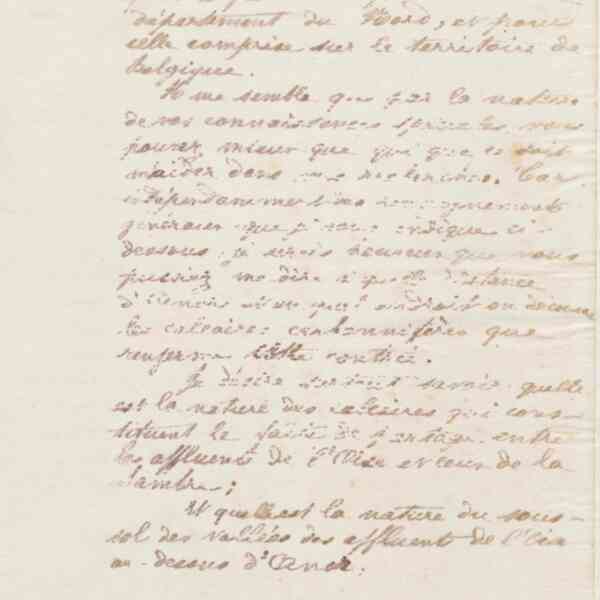 département du Nord, et pour
celle comprise sur le territoire de
Belgique.
Il me semble que par la nature
de vos connaissances spéciales vous
pouvez mieux que qui que ce soit
m'aider dans mes recherches. Car
indépendamment des renseignements
généraux que je vous indique ci-
dessous je serais heureux que vous
pussiez me dire à quelle distance
d' on découvre
les calcaires carbonifères que
renferme cette contrée.
Je désire surtout savoir quelle
est la nature des calcaires qui cons-
tituent le faîte de partage entre
les affluents de l'Oise et ceux de la
Sambre;
Et quelle est la nature du sous-
sol des vallées des affluents de l'Oise
au-dessus d'Anor.